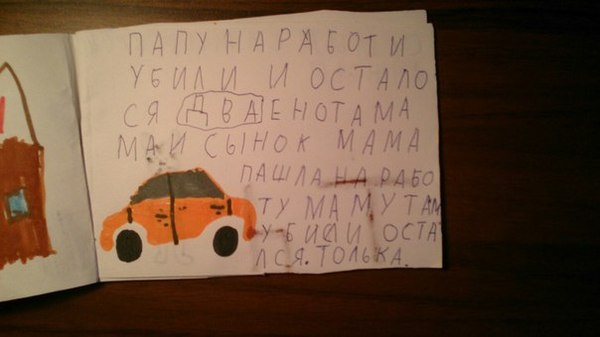 ПАПУ НА РАБОТИ
УБИЛИ И ОСТАЛО
СЯ ДВА ЕНОТА МА
МА И СЫНОК МАМА
ПАШЛА НА РАБО
ТУ МАМУ ТАМ
УБИСИ ОСТА
ЛСЯ. ТОЛЬКА.